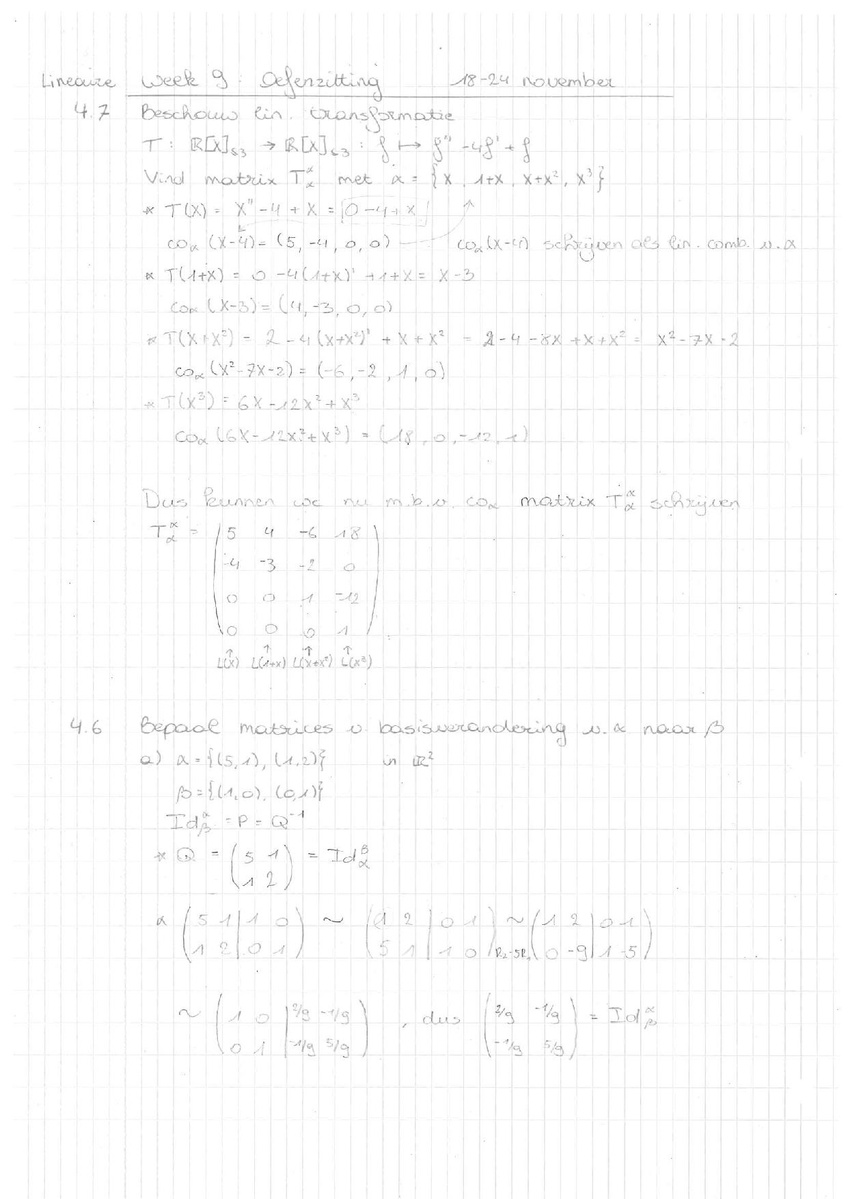 Lineaire Week 9 : Oefenzitting 18-24 november
4.7 Beschouw lin. transformatie
T : ℝ[X]≤3 → ℝ[X]≤3 : f ↦ f'' -4f' + f
Vind matrix T_α^α met α = {X, 1+X, X+X², X³}
* T(X) = X'' - 4 + X = 0-4+X
co_α (X-4) = (5, -4, 0, 0) co_α(X-4) schrijven als lin. comb. v. α
* T(1+X) = 0 -4(1+X)' +1+X = X-3
co_α (X-3) = (4, -3, 0, 0)
* T(X+X²) = 2 - 4(X+X²)' + X + X² = 2-4 -8X +X+X² = X²-7X-2
co_α (X²-7X-2) = (-6, -2, 1, 0)
* T(X³) = 6X -12X² + X³
co_α (6X-12X²+X³) = (18, 0, -12, 1)
Dus kunnen we nu m.b.v. co_α matrix T_α^α schrijven
T_α^α = ( 5 4 -6 18
-4 -3 -2 0
0 0 1 -12
0 0 0 1 )
↑ ↑ ↑ ↑
L(X) L(1+X) L(X+X²) L(X³)
4.6 Bepaal matrices v. basisverandering v. α naar β
a) α = {(5,1), (1,2)} in ℝ²
β = {(1,0), (0,1)}
Id_β^α = P = Q⁻¹
* Q = ( 5 1 = Id_α^β
1 2 )
* ( 5 1 | 1 0 ~ ( 1 2 | 0 1 ~ ( 1 2 | 0 1
1 2 | 0 1 ) 5 1 | 1 0 ) R₂-5R₁ 0 -9 | 1 -5 )
~ ( 1 0 | 2/9 -1/9 , dus ( 2/9 -1/9 = Id_β^α
0 1 | -1/9 5/9 ) -1/9 5/9 )